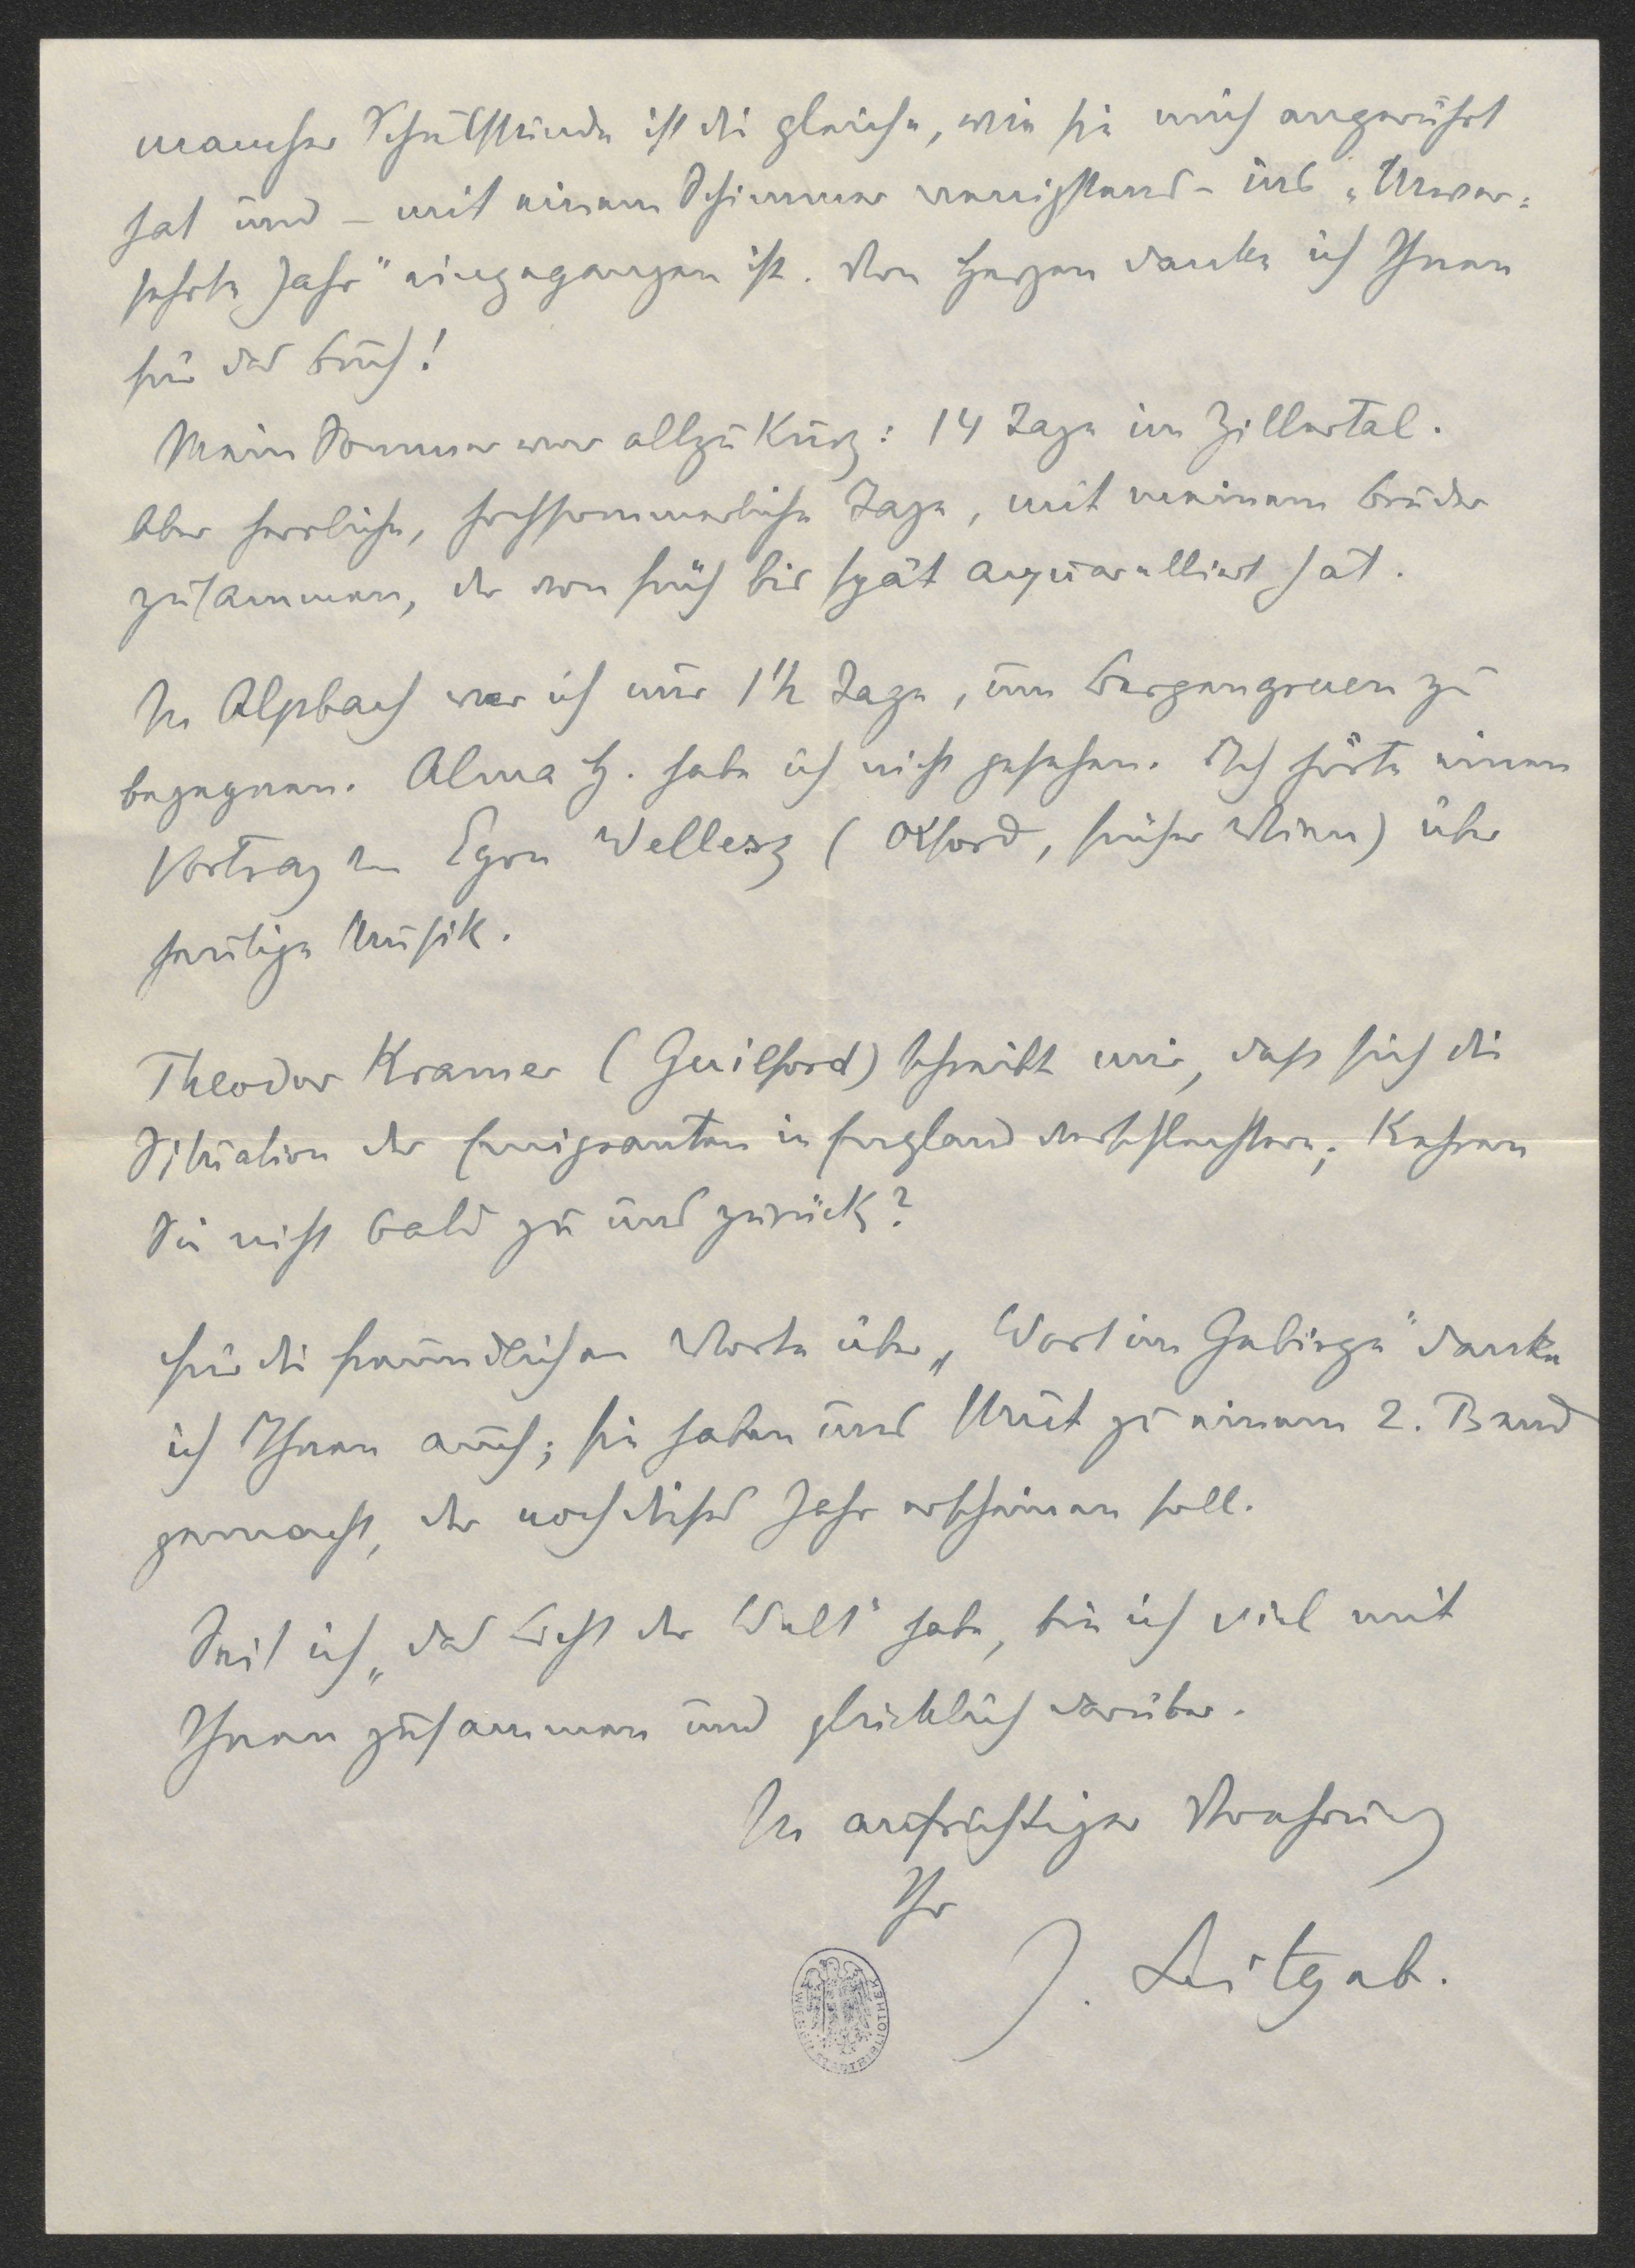 mancher Schulstunde ist die gleiche, wie sie mich angerührt
hat und – mit einem Schimmer wenigstens – ins „Unver=
sehrte Jahr" eingegangen ist. Von Herzen danke ich Ihnen
für das Buch!
Mein Sommer war allzu kurz: 14 Tage im Zillertal.
Aber herrliche, hochsommerliche Tage, mit meinem Bruder
zusammen, der von früh bis spät aquarelliert hat.
In Alpbach war ich nur 1 1/2 Tage, um Bergengruen zu
begegnen. Alma H. habe ich nicht gesehen. Ich hörte einen
Vortrag von Egon Wellesz (Oxford, früher Wien) über
heutige Musik.
Theodor Kramer (Guilford) schreibt mir, dass sich die
Situation der Emigranten in England verschlechtere; Kehren
Sie nicht bald zu uns zurück?
Für die freundlichen Worte über „Wort im Gebirge" danke
ich Ihnen auch; sie haben uns Mut zu einem 2. Band
gemacht, der noch dieses Jahr erscheinen soll.
Seit ich „das Echo der Welt" habe, bin ich viel mit
Ihnen zusammen und glücklich darüber.
In aufrichtiger Verehrung
Ihr
J. Leitgeb.
WIENER STADTBIBLIOTHEK